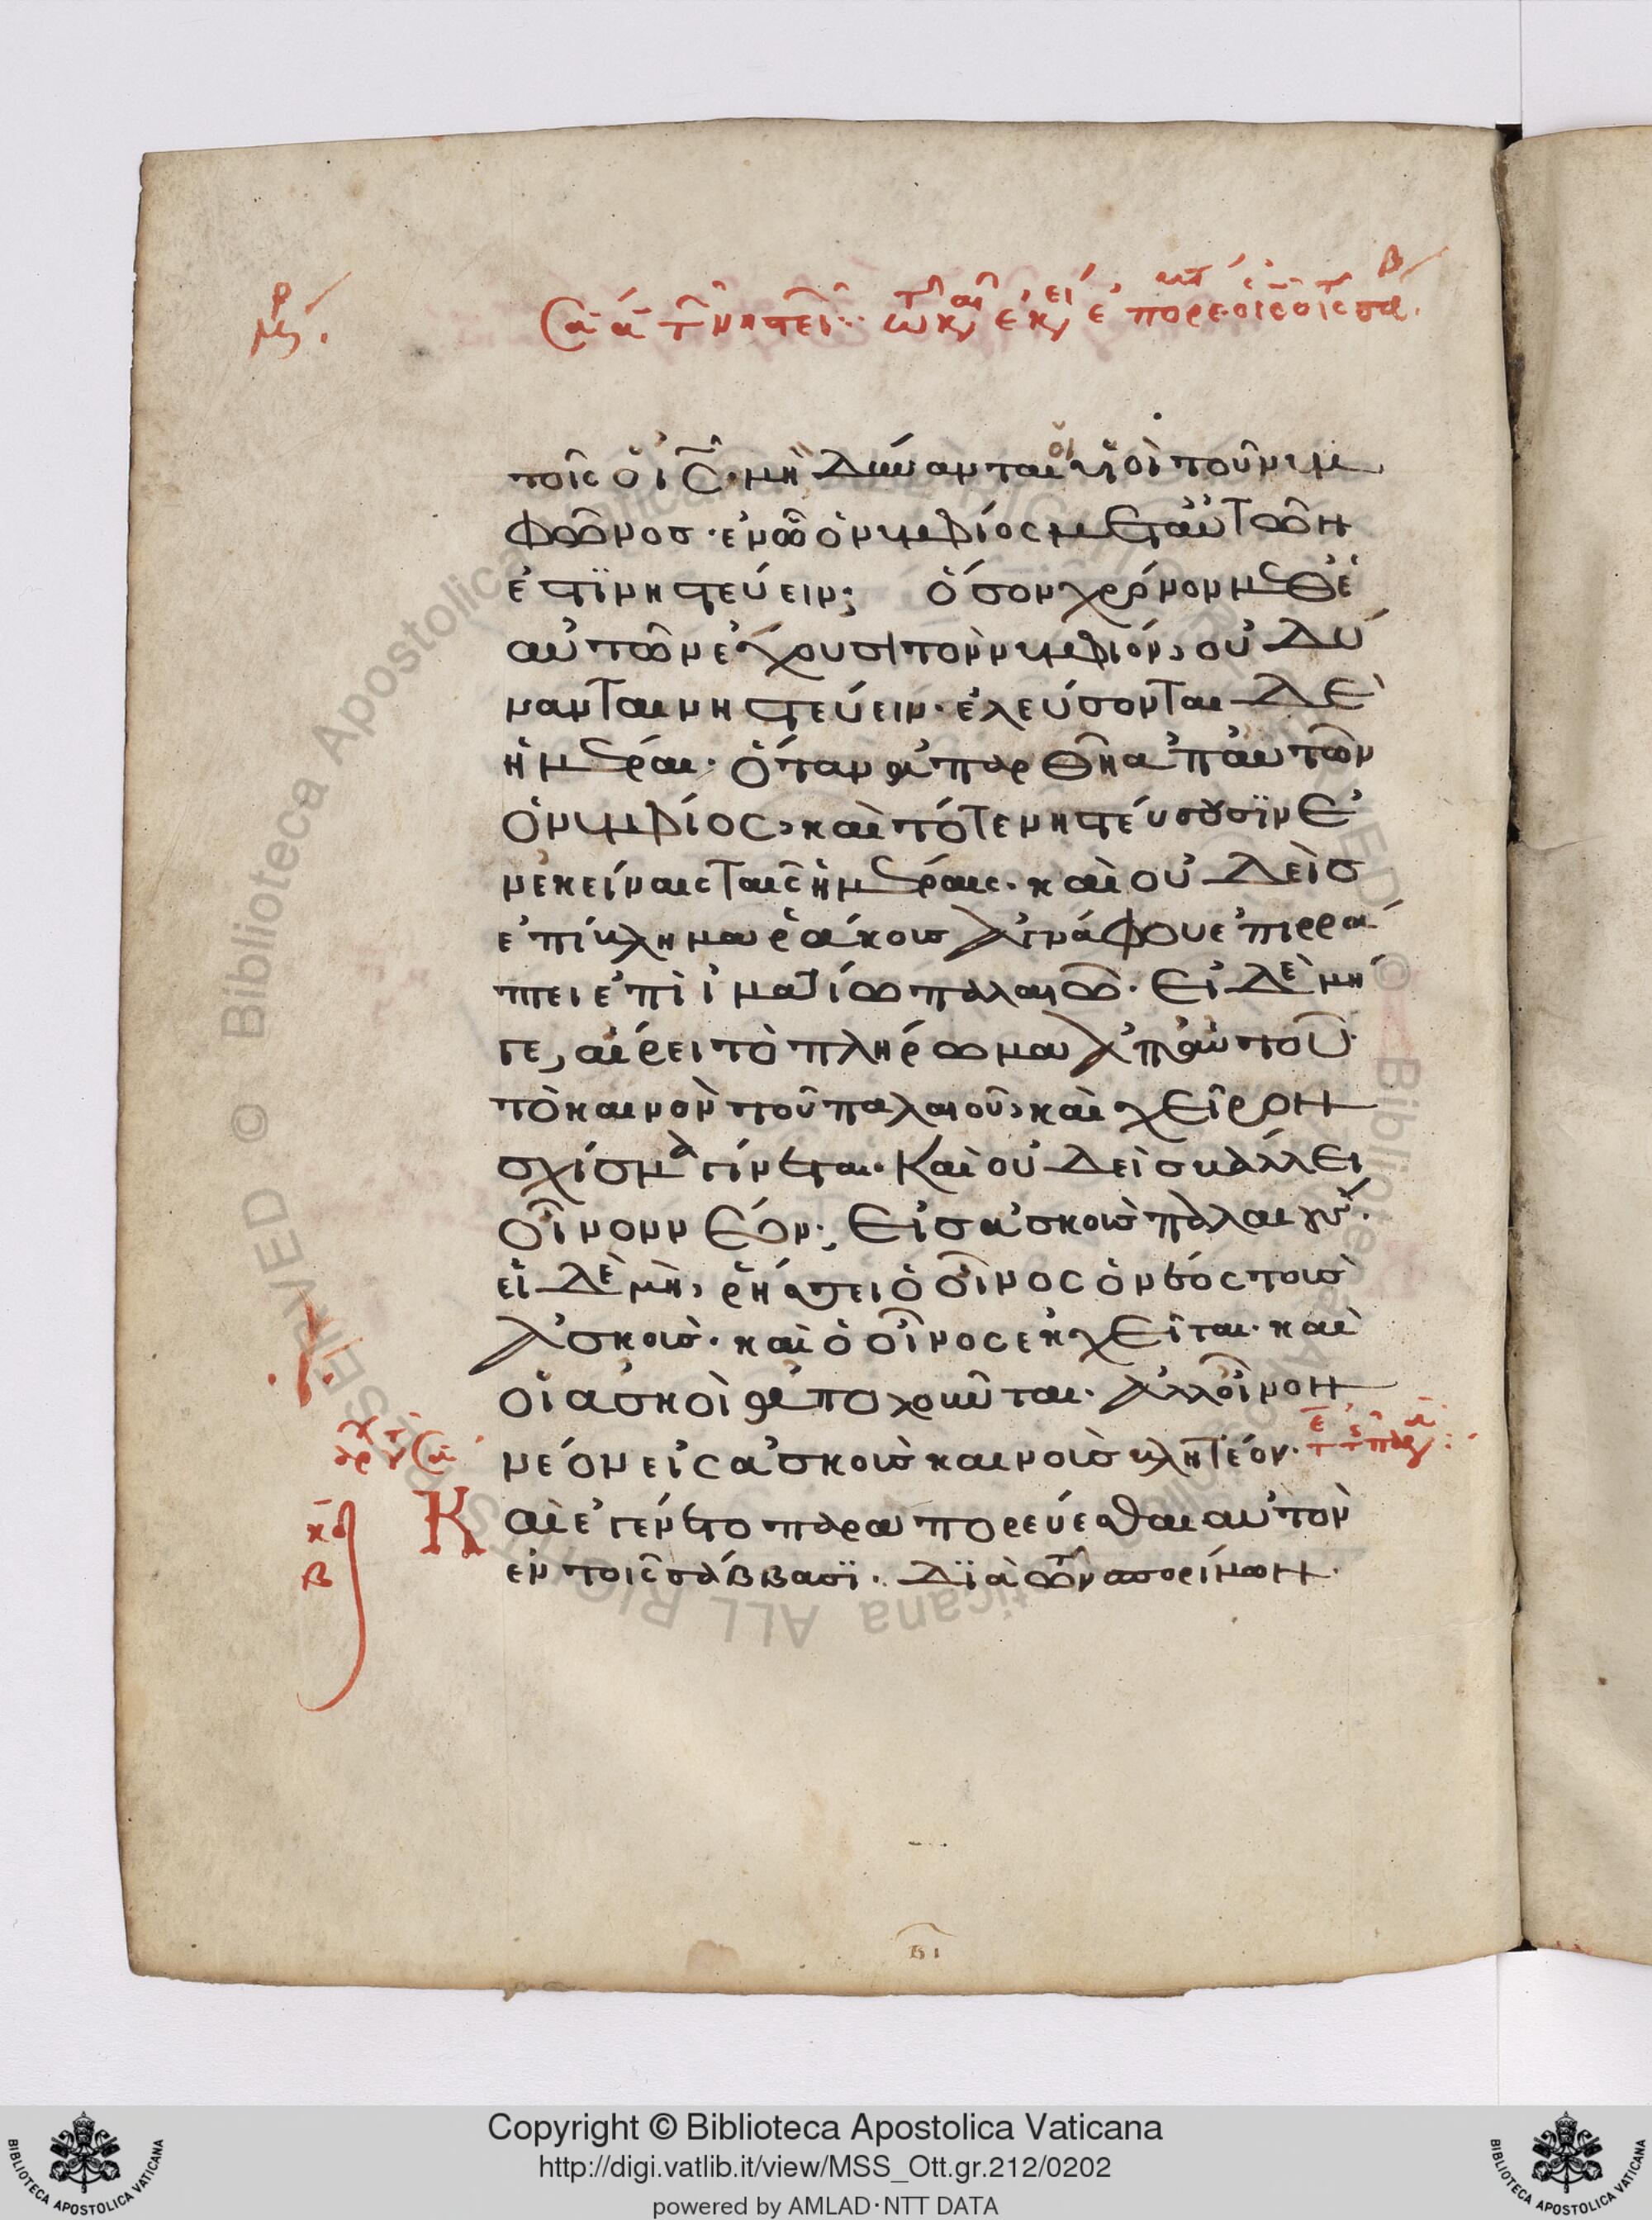 τοῖς ὁ ἰς̅· μὴ δύνανται οἱ υἱοὶ τοῦ νυμ
φῶνος· ἐν ὧ ὁ νυμφίος μετ' αὐτῶν
ἐστϊ νηστεύειν; ὅσον χρόνον μεθ' ἑ
αυτῶν ἔχουσι τὸν νυμφίον, οὐ δύ
νανται νηστεύειν· ἐλεύσονται δὲ
ἡμέραι· ὅταν ἀπαρθῆ ἀπ' αὐτῶν
ὁ νυμφίος, καὶ τότε νηστεύσουσϊν ἐ
ν ἐκείναις ταῖς ἡμέραις· καὶ οὐδεὶσ
ἐπίβλημα ῥάκους ἀγνάφου ἐπιρρά
πτει ἐπὶ ἱματίω παλαιῶ· εἰ δὲ μή
γε, αἴρει τὸ πλήρωμα ἀπ' αὐτοῦ·
τὸ καινὸν τοῦ παλαιοῦ, καὶ χεῖρον
σχίσμα γίνεται· Καὶ οὐδεὶσ βάλλει
οἶνον νέον· εἰσ ἀσκοὺσ παλαιούς·
εἰ δὲ μὴ, ῥήσσει ὁ οἶνος ὁ νέος τοὺσ
ἀσκούσ· καὶ ὁ οἶνος ἐκχεῖται· καὶ
οἱ ἀσκοὶ ἀπολοῦνται· ἀλλ' οἶνον
νέον εἰς ἀσκοὺσ καινοὺσ βλητέον·
Καὶ ἐγένετο παραπορεύεσθαι αὐτὸν
ἐν τοῖς σάββασϊ· δϊὰ τῶν σπορίμων·
κδ
β
βι
Copyright © Biblioteca Apostolica Vaticana
http://digi.vatlib.it/view/MSS_Ott.gr.212/0202
powered by AMLAD·NTT DATA
BIBLIOTECA APOSTOLICA VATICANA
BIBLIOTECA APOSTOLICA VATICANA